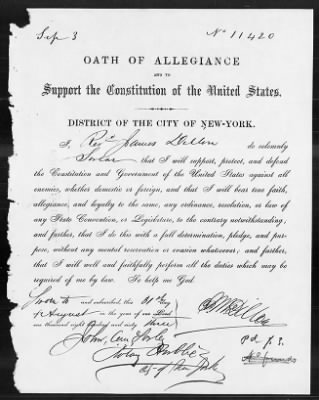 Sep 3 No 11420
OATH OF ALLEGIANCE
AND TO
Support the Constitution of the United States.
DISTRICT OF THE CITY OF NEW-YORK.
I, James Dillon do solemnly
that I will support, protect, and defend
the Constitution and Government of the United States against all
enemies, whether domestic or foreign, and that I will bear true faith,
allegiance, and loyalty to the same, any ordinance, resolution, or law of
any State Convention, or Legislature, to the contrary notwithstanding,
and further, that I do this with a full determination, pledge, and pur-
pose, without any mental reservation or evasion whatsoever; and further,
that I will well and faithfully perform all the duties which may be
required of me by law. So help me God.
Sworn to and subscribed, this 31st day
of August in the year of our Lord
one thousand eight hundred and sixty three
John
Notary Public
of New York